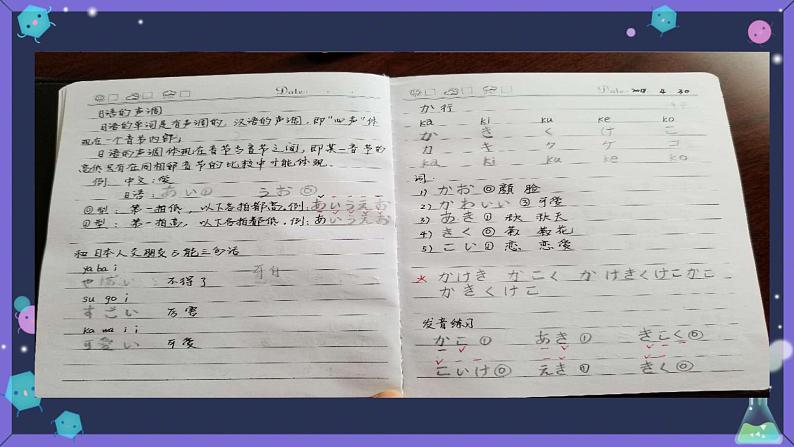 Date:
日语的声调
日语的单词是有声调的，汉语的声调，即"四声"体
现在一个音节内部；
日语的声调体现在音节与音节之间，即某一音节的
高低只有在同相邻音节的比较中才能体现。
例 中文：爱
日语：あい① うお⓪
⓪型：第一拍低，以下各拍都高。例：あいうえお
①型：第一拍高，以下各拍都低。例：あいうえお
和日本人交朋友只能三句话
ya ba i
やばい 不得了
su go i
すごい 厉害
ka wa i i
可愛い 可爱
Date 4 30
か行
ka ki ku ke ko
か き く け こ
カ キ ク ケ コ
ka ki ku ke ko
词：
1) かお ⓪ 顔 脸
2) かわいい ③ 可爱
3) あき ① 秋 秋天
4) きく ⓪ 菊 菊花
5) こい ① 恋 恋爱
かけき かこく かけきくけこかこ
かきくけこ
发音练习
かこ① あき① きこく⓪
こいけ⓪ えき① きく⓪